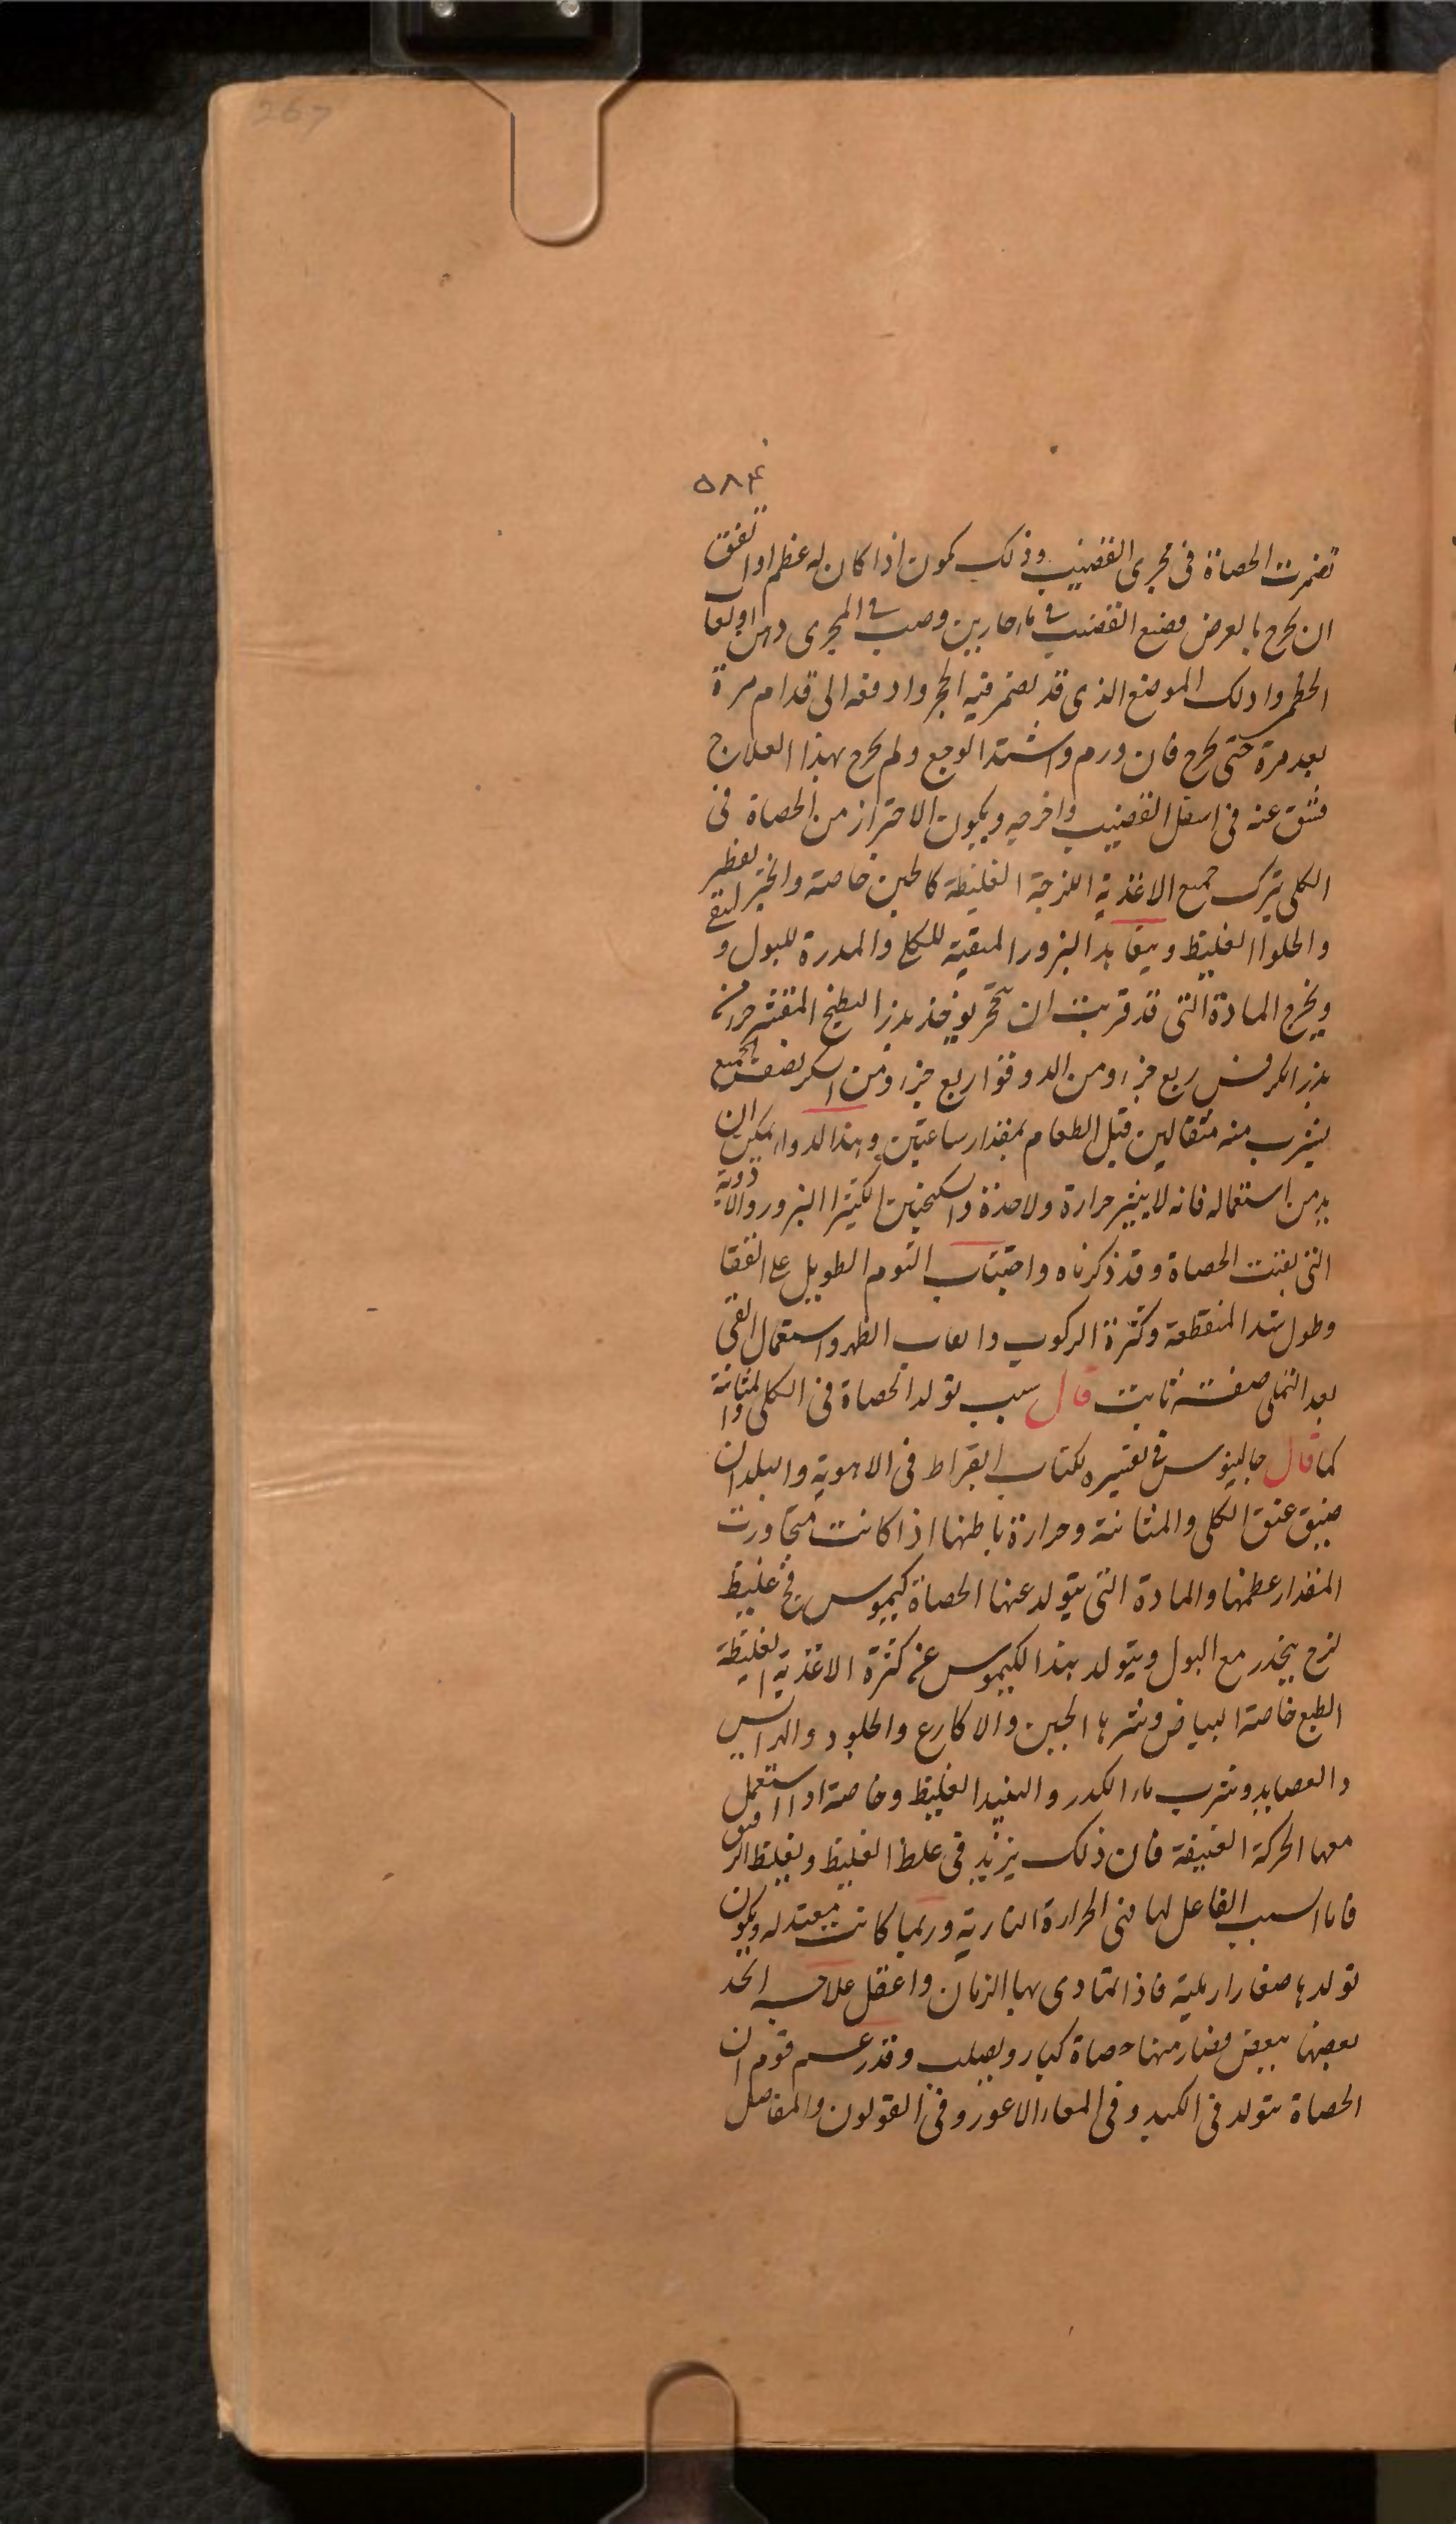 267
٥٨۴
تضمرت الحصاة فى مجرى القضيب وذلك يكون اذا كان له عظم او اتفق
ان يخرج بالعرض فضع القضيب فى ماء حار بين وصب فى المجرى دهن او لعاب
الخطمى وادلك الموضع الذى قد يضمر فيه الحجر وادفعه الى قدام مرة
بعد مرة حتى يخرج فان ورم واشتد الوجع ولم يخرج بهذا العلاج
فشق عنه فى اسفل القضيب واخرجه ويكون الاحتراز من الحصاة فى
الكلى بترك جميع الاغذية اللزجة الغليظة كالجبن خاصة والخبز الفطير
والحلوا الغليظ ويتعاهد البزور المنقية للكلى والمدرة للبول و
ويخرج المادة التى قد قربت ان تتحجر يوخذ بزر البطيخ المقشر جزء
بزر الكرفس ربع جزء ومن الدوقوا ربع جزء ومن السكر نصف الجميع
يشرب منه مثقالين قبل الطعام بمقدار ساعتين وهذا الدواء يمكن ان
يدمن استعماله فانه لا يثير حرارة ولا حدة والسكنجبين الكثير البزور والادوية
التى تفتت الحصاة وقد ذكرناه واجتناب النوم الطويل على القفا
وطول شد المنطقة وكثرة الركوب واتعاب الظهر واستعمال القى
بعد التملى صفة ثابت قال سبب تولد الحصاة فى الكلى والمثانة
كما قال جالينوس فى تفسيره لكتاب ابقراط فى الاهوية والبلدان
ضيق عنق الكلى والمثانة وحرارة باطنها اذا كانت متجاوزت
المقدار عظمها والمادة التى يتولد عنها الحصاة كيموس فج غليظ
لزج ينحدر مع البول ويتولد هذا الكيموس عن كثرة الاغذية الغليظة
الطبع خاصة البياض وشربها الجبن والاكارع والجلود والهرائس
والعصايد وشرب ماء الكدر والنبيذ الغليظ وخاصة اذا استعمل
معها الحركة العنيفة فان ذلك يزيد فى غلظ الغليظ ويغلظ الرقيق
فاما السبب الفاعل لها فهى الحرارة النارية وربما كانت معتدله ويكون
تولدها صغارا رملية فاذا تمادى بها الزمان واغفل علاجه اتحد
بعضها ببعض فصار منها حصاة كبار ويصلب وقد زعم قوم ان
الحصاة تتولد فى الكبد وفى المعاء الاعور وفى القولون والمفاصل